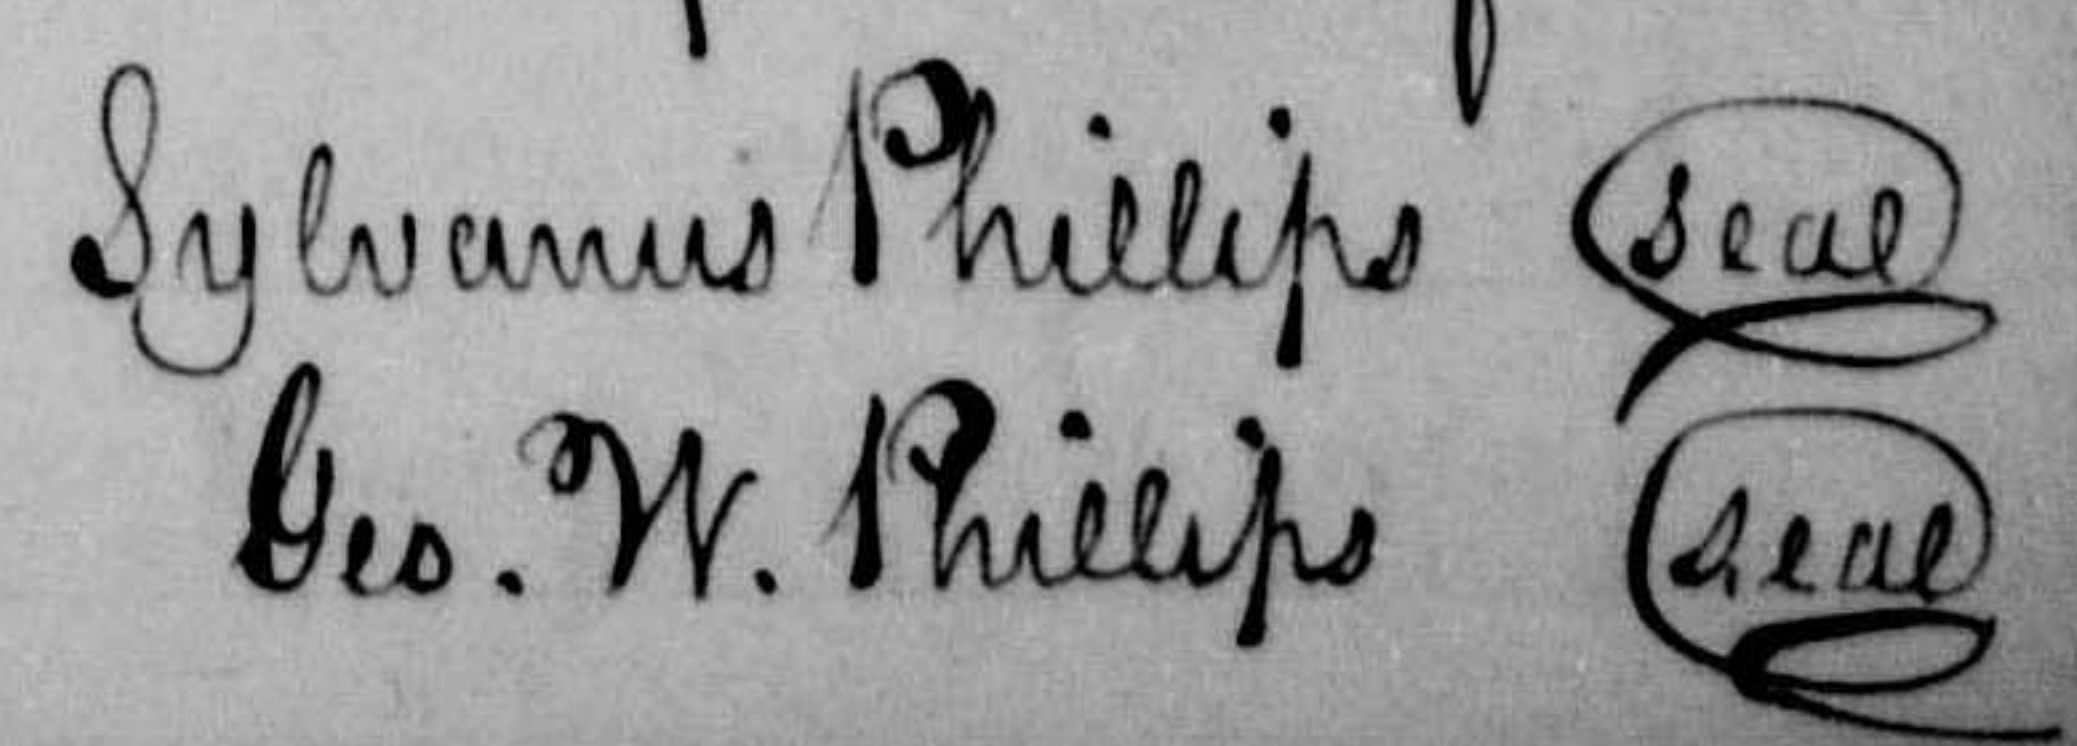 Sylvanus Phillips seal
Geo. W. Phillips seal